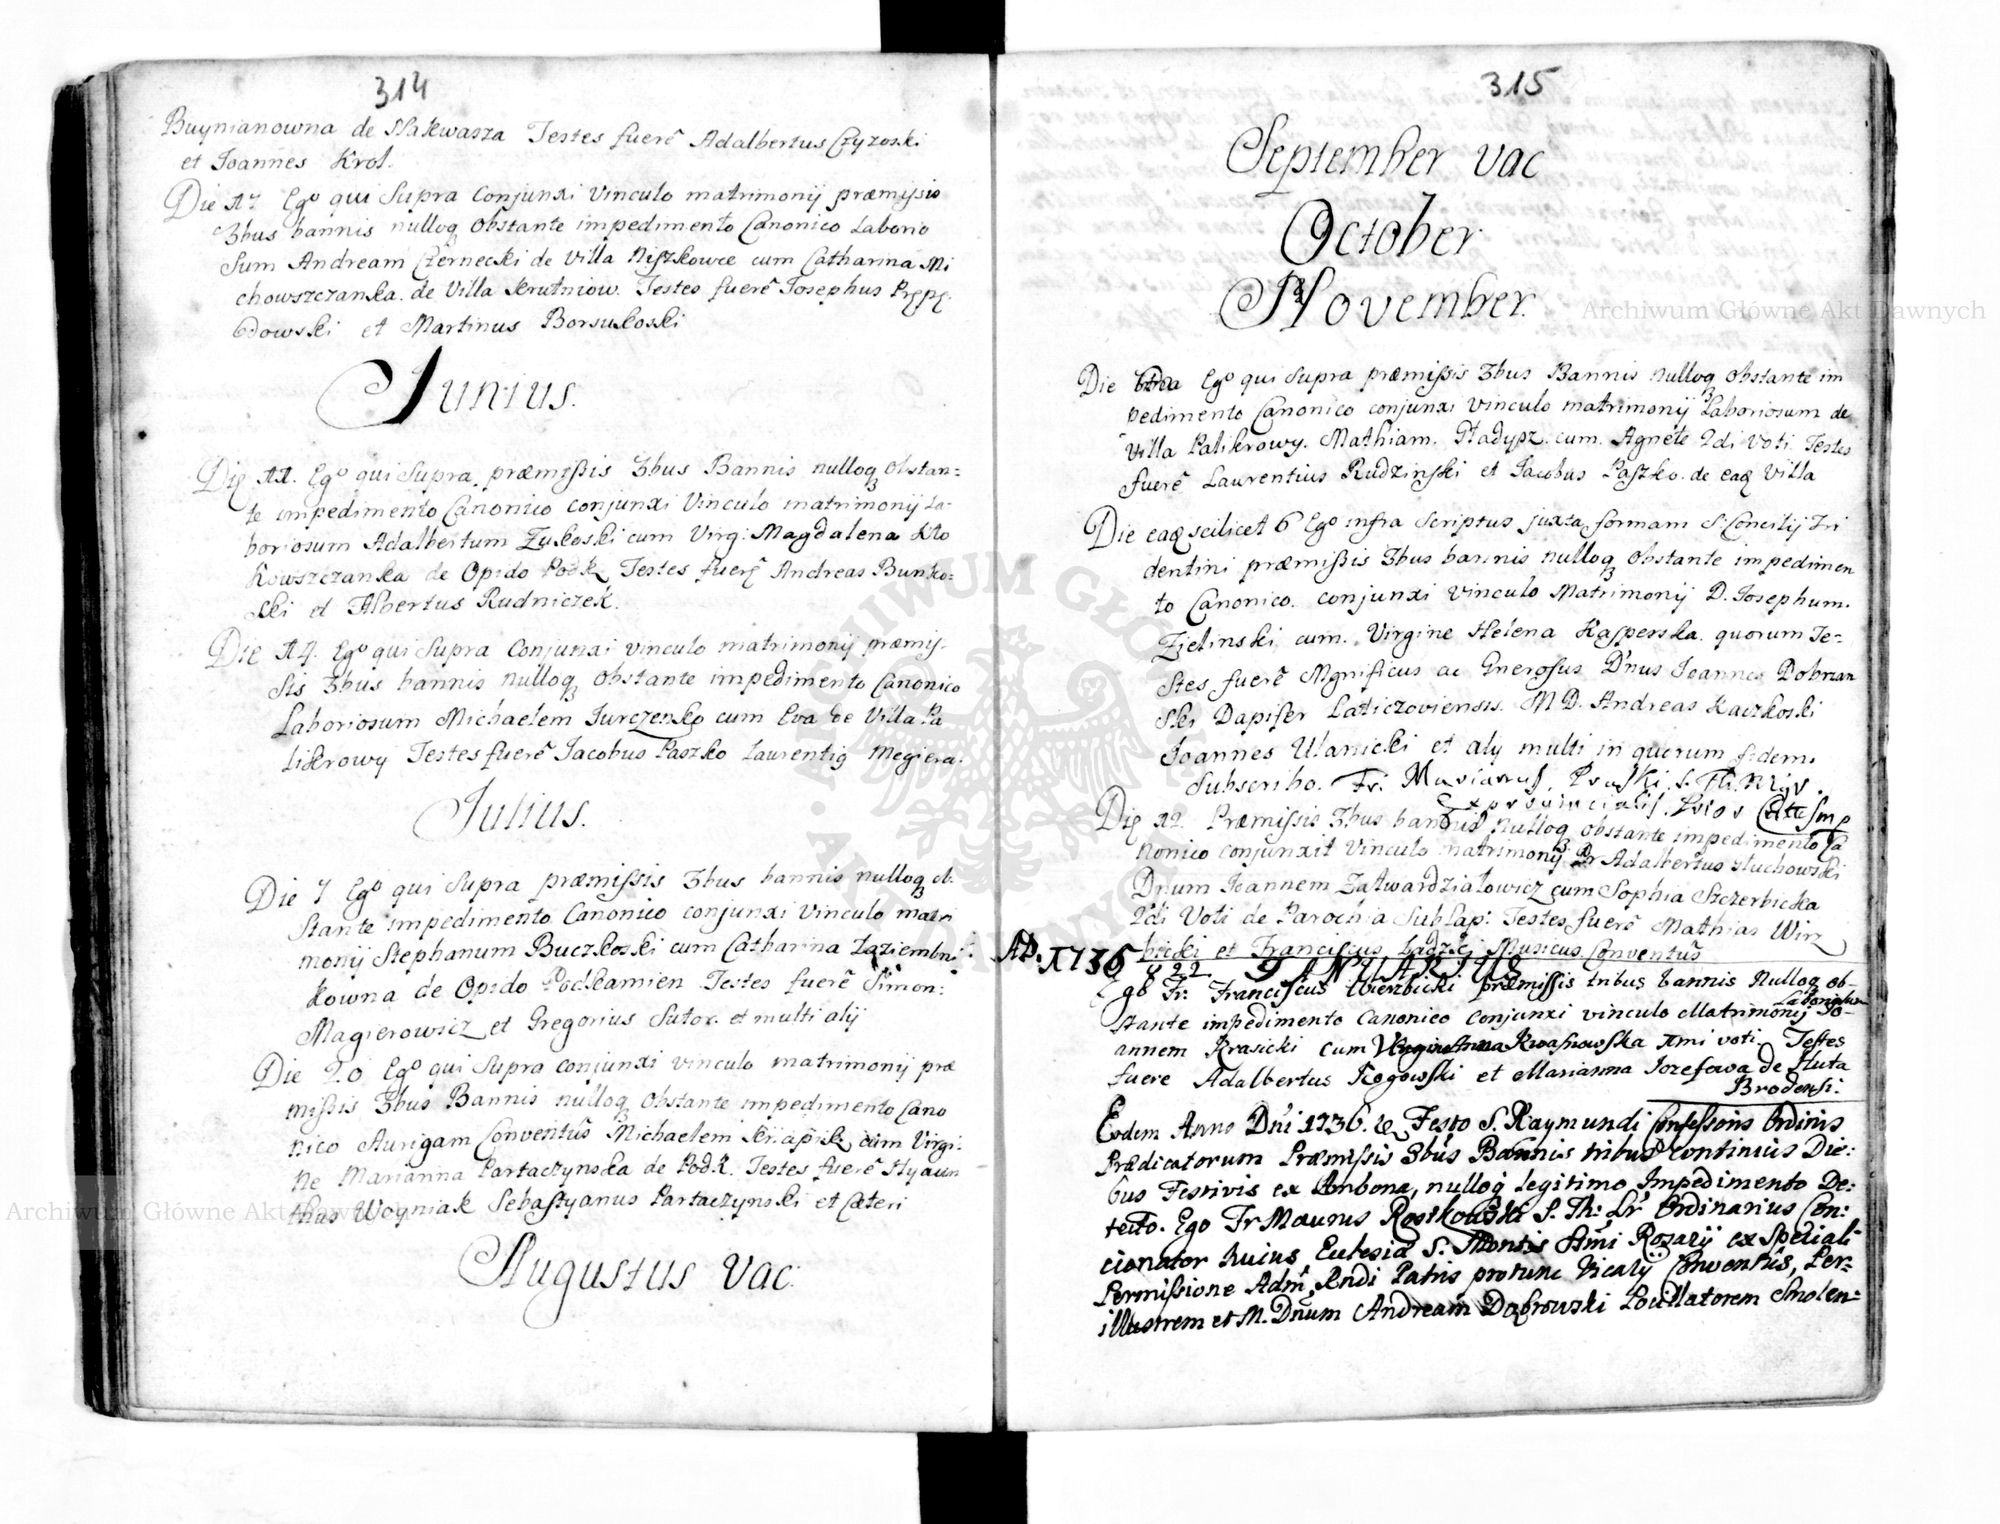 314
Buynianowna de Nakwasza Testes fuerẽ Adalbertus Czyzoski
et Joannes Krol.
Die 17 Ego qui Supra Conjunxi Vinculo matrimonij præmissis
3bus bannis nulloq Obstante impedimento Canonico Laborio
Sum Andream Czernecki de Villa Niszkowce cum Catharina Mi
chowszczanka. de Villa Krutniow. Testes fuerẽ Josephus
et Martinus Borsukoski
Junius.
Die 11. Ego qui Supra præmissis 3bus Bannis nulloq obstan=
te impedimento Canonico conjunxi Vinculo matrimonij La-
boriosum Adalbertum Zukoski cum Virg: Magdalena Kło
kowszczanka de Opido Podk Testes fuerẽ Andreas Bunko=
ski et Albertus Rudniczek.
Die 14. Ego qui Supra Conjunxi vinculo matrimonij præmis-
sis 3bus bannis nulloq obstante impedimento Canonico
Laboriosum Michaelem Jurczenko cum Eva de Villa Pa
likrowy Testes fuerẽ Jacobus Paszko Laurentig Megiera.
Julius.
Die 7 Ego qui Supra præmissis 3bus bannis nulloq ob-
stante impedimento Canonico conjunxi vinculo matri
monij Stephanum Buczkoski cum Catharina Łaziembni
kowna de Opido Podkamien Testes fuerẽ Simon:
Magierowicz et Gregorius Sutor. et multi alij
Die 20 Ego qui Supra conjunxi vinculo matrimonij præ
missis 3bus Bannis nulloq Obstante impedimento Cano
nico Aurigam Conventus Michaelem cum Virgi:
ne Marianna Partaczynska de Podk. Testes fuerẽ Hyacin
thus Woyniak Sebastyanus Partaczynski et Cæteri
Augustus vac:
315
September vac
October
November.
Die Ego qui Supra præmissis 3bus Bannis nulloq obstante im
pedimento Canonico conjunxi vinculo matrimonij Laboriosum de
Villa Palikrowy. Mathiam. Gładysz. cum. Agnete 2di Voti. Testes
fuerẽ Laurentius Rudzinski et Jacobus Paszko. de eaq Villa
Die eaq scilicet 6 Ego infra Scriptus juxta formam S. Concilij Tri
dentini præmissis 3bus bannis nulloq obstante impedimen
to Canonico. conjunxi vinculo Matrimonij D. Josephum.
Zielinski cum. Virgine Helena Kasperska. quorum Te=
stes fuerẽ Mgnificus ac Gnerosus Dnus Joannes Dobrzan
ski Dapifer Laticzoviensis. M. D. Andreas Kaczkoski
Joannes Ulanicki et alij multi in quorum fidem.
Subscribo. Fr. Marianus. Pruski. S. Th. Mgr.
Exprovincialis. Prior
Die 12. Præmissis 3bus bannis nulloq obstante impedimento Ca
nonico conjunxit vinculo matrimonij Adalbertus Słuchowski
Dnum Joannem Zatwardziałowicz cum Sophia Szczerbicka
2di Voti de Parochia Testes fuerẽ Mathias Wirz
bicki et Franciscus Musicus Conventus
AD. 1736 JANUARIUS
8 22
Ego Fr: Franciscus Wierzbicki præmissis tribus bannis Nulloq ob-
stante impedimento Canonico Conjunxi vinculo Matrimonij Laboriosum Jo-
annem Krasicki cum Virgine Anna Kwasnowska 1mi voti. Testes
fuere Adalbertus Rogowski et Marianna Jozefowa de Huta
Brodensi:
Eodem Anno Dni 1736. Festo S. Raymundi Confessoris Ordinis
Prædicatorum Præmissis 3bus Bannis tribus continuis Die:
bus Festivis ex Ambona, nulloq legitimo Impedimento De:
tecto. Ego Fr Maurus Rosikowski S. Th: Lr Ordinarius Con:
cionator huius Eclesiæ S: Montis Ssmi Rozarij ex Speciali
Permissione Adm Rndi Patris protunc Vicarij Conventus, Per=
illustrem et M. Dnum Andream Dąbrowski Pocillatorem Smolen: